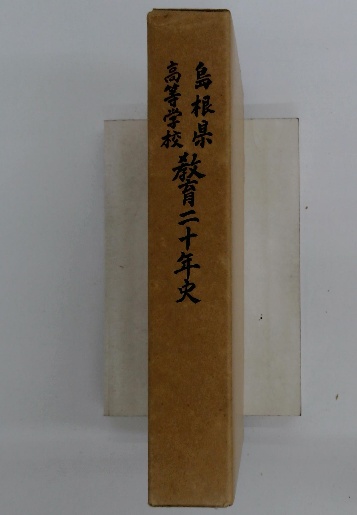 島根県
高等学校
教育二十年史